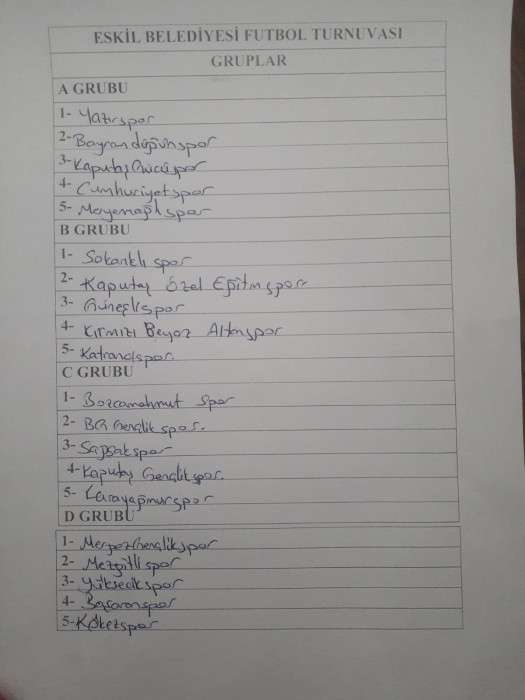 ESKİL BELEDİYESİ FUTBOL TURNUVASI
GRUPLAR
A GRUBU
1- Yatırspor
2- Bayramdüğünspor
3- Kaputaş Gücüspor
4- Cumhuriyetspor
5- spor
B GRUBU
1- spor
2- Kaputaş Özel Eğitimspor
3- Güneşlispor
4- Kırmızı Beyaz Altınspor
5- Katrancıspor.
C GRUBU
1- Bozcamahmut spor
2- BG Gençlik spor.
3- Sapsakspor
4- Kaputaş Gençlikspor.
5- Karayağmurspor
D GRUBU
1- Merkez Gençlikspor
2- Mezgitli spor
3- spor
4- Başaranspor
5- Kökezspor